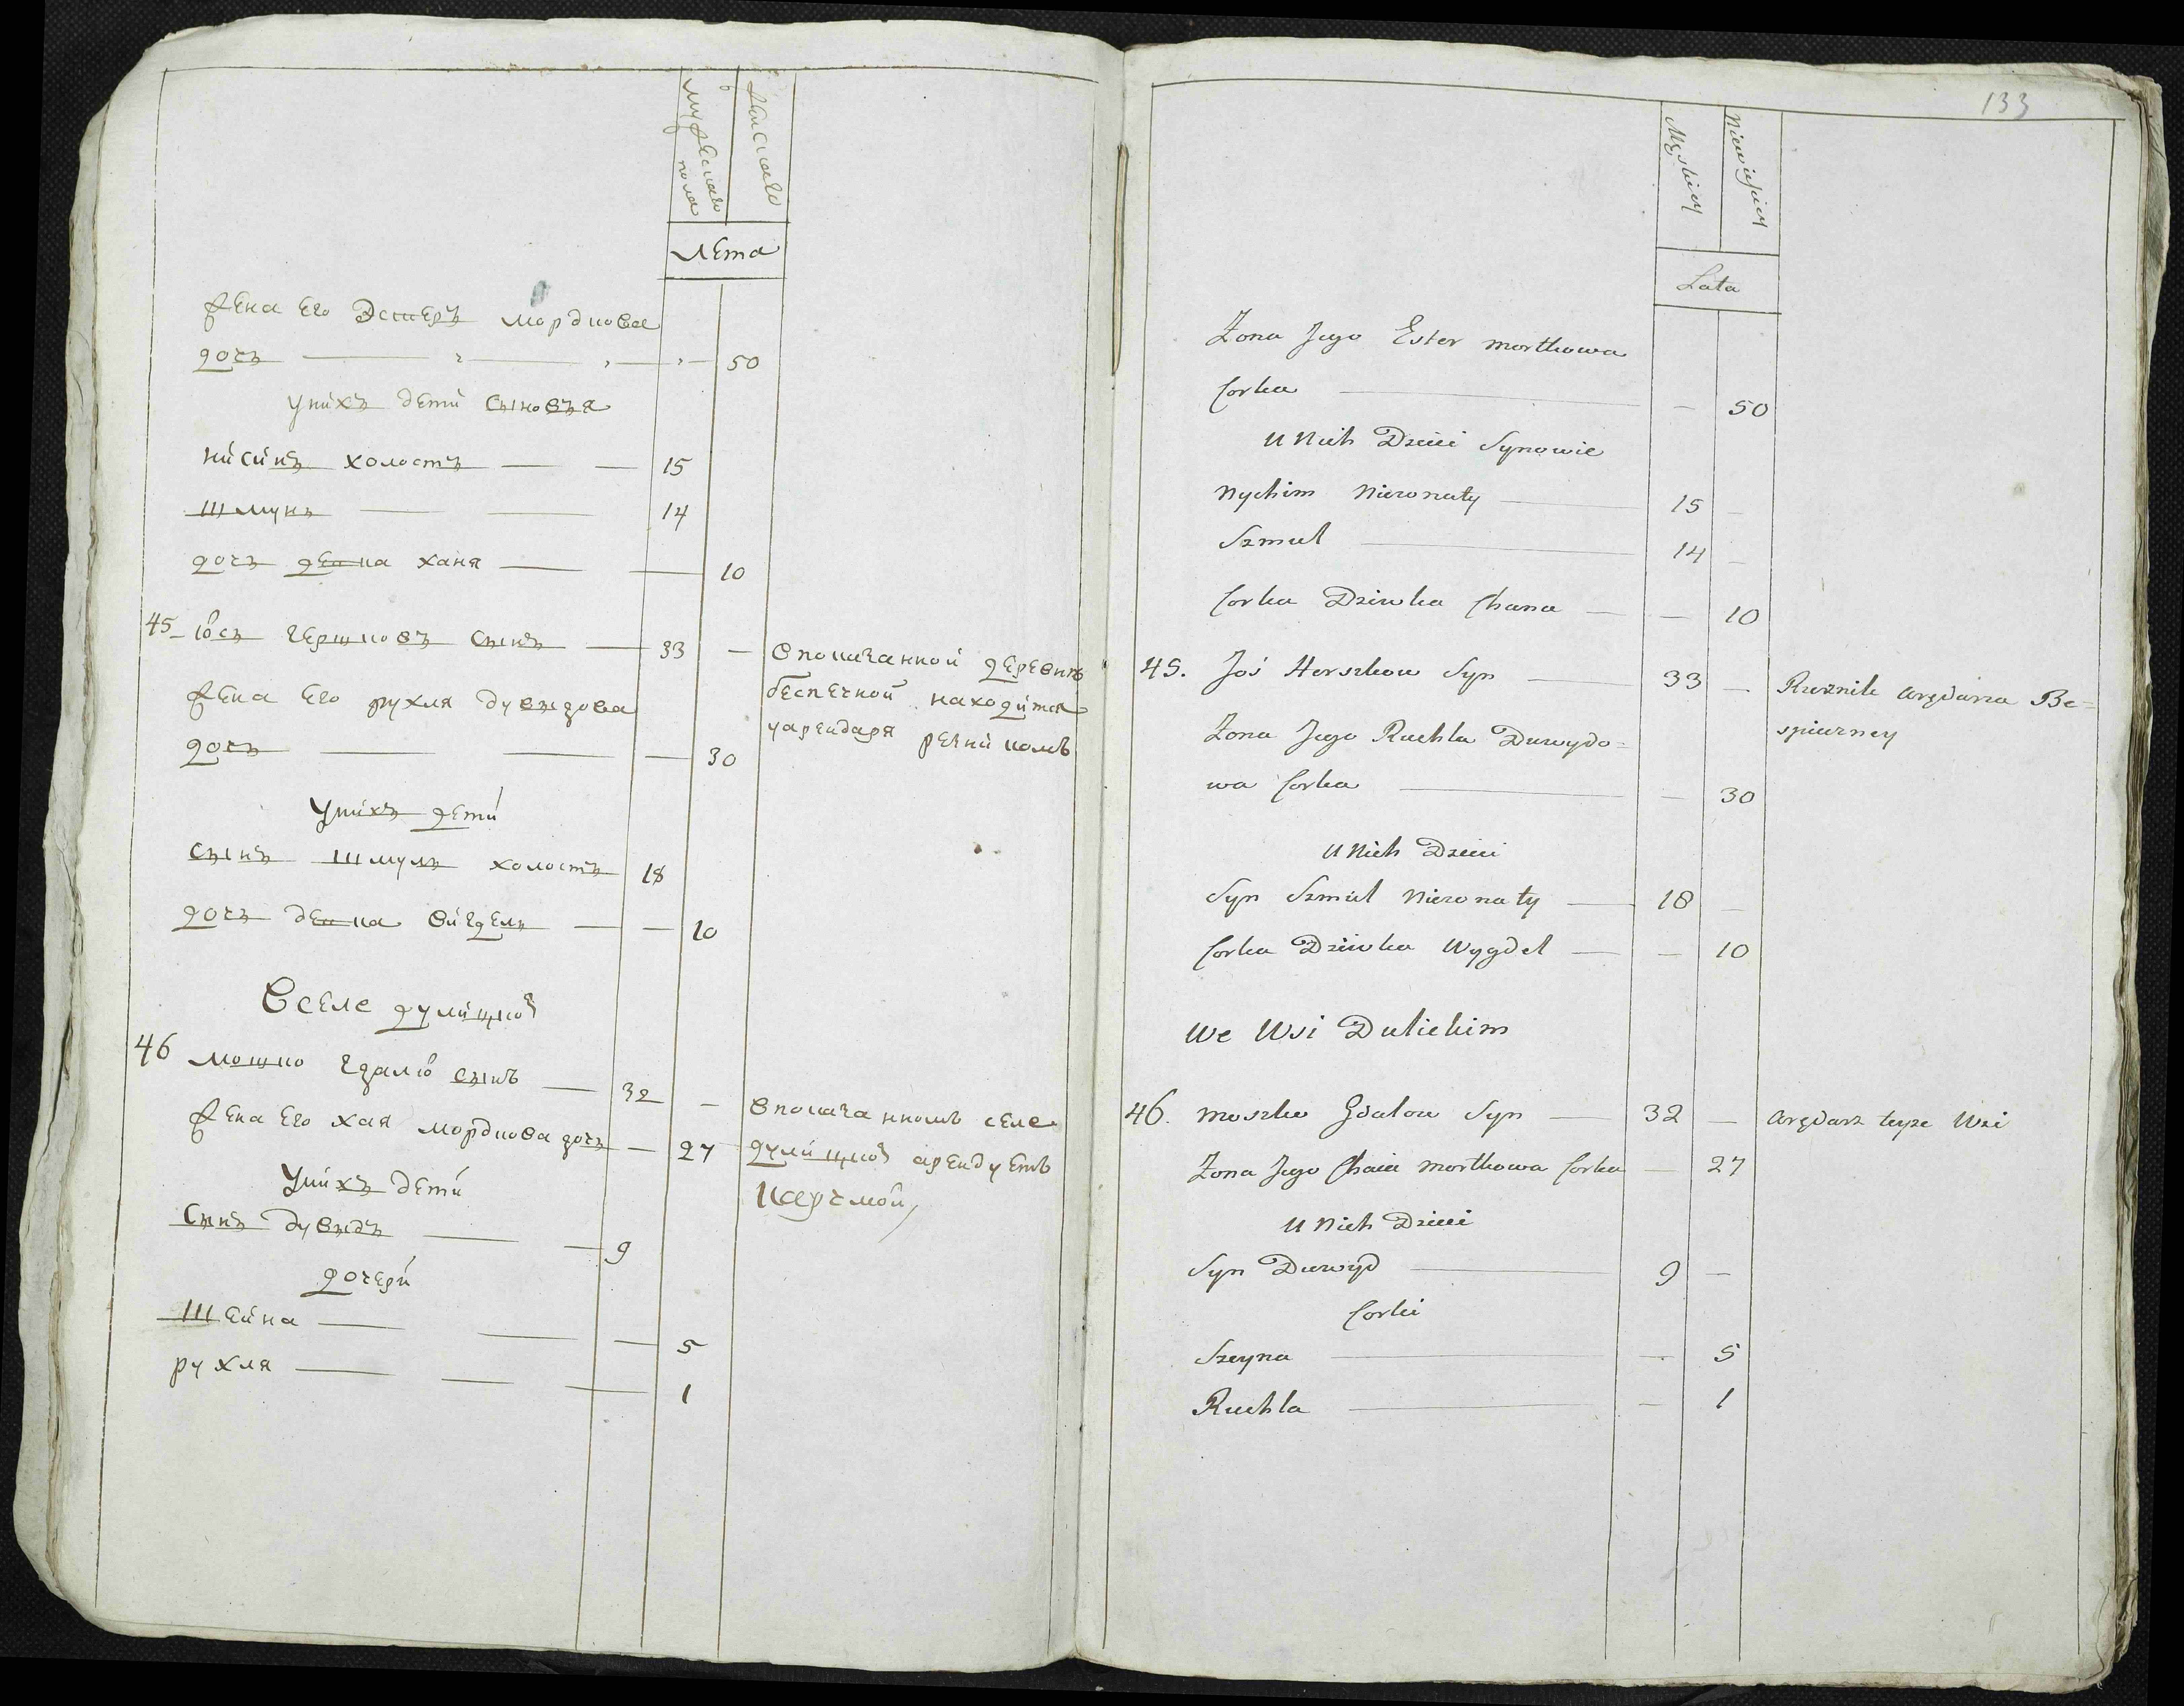 мужеска пола
женска
Лета
жена его Эстеръ мордкова
дочь 50
уних дети сыновья
нисинъ холостъ 15
Шмуль 14
дочь девка ханя 10
45 Іось гершковъ сынъ 33 — Впоказанной деревнѣ
беспечной находится
уарендаря резникомъ
жена его рухля дувыдова
дочь 30
Унихъ дети
сынъ шмуль холостъ 18
дочь девка вигдель 10
Вселе дулицкой
46 мошко гдалiов сынъ 32 — Впоказанномъ селе
дулицкой арендуетъ
Корчмой
жена его хая мордкова дочь — 27
Унихъ дети
Сынъ дувыдъ 9
дочери
Шейна 5
рухля 1
133
Męskiey
Niewieskiey
Lata
Zona Jego Ester mortkowa
Corka — 50
U Nich Dzieci Synowie
Nychim Niezonaty 15 —
Szmul 14 —
Corka Dziwka Chana — 10
45. Joś Herszkow Syn 33 — Rzeznik Arędarza Be=
spieczney
Zona Jego Ruchla Duwydo=
wa Corka — 30
U Nich Dzieci
Syn Szmul Niezonaty 18 —
Corka Dziwka Wygdel — 10
We Wsi Dulickim
46. Moszko Gdalow Syn 32 — Arędarz teyze Wsi
Zona Jego Chaia mortkowa Corka — 27
U Nich Dzieci
Syn Duwyd 9 —
Corki
Szeyna — 5
Ruchla — 1